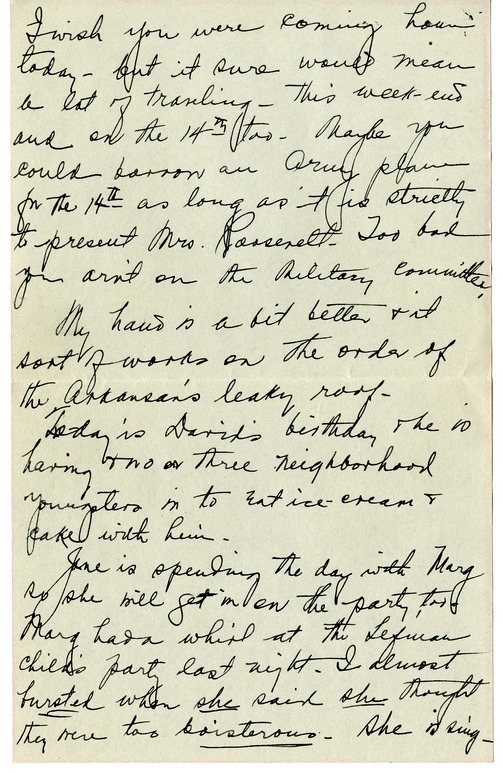 I wish you were coming home
today - but it sure would mean
a lot of traveling - this week-end
and on the 14th too. Maybe you
could borrow an Army plane
for the 14th as long as it is strictly
to present Mrs. Roosevelt. Too bad
you ar'nt on the Military Committee.
My hand is a bit better & it
sort of works on the order of
the Arkansan's leaky roof-
Today is David's birthday & he is
having two or three neighborhood
youngsters in to eat ice-cream &
cake with him.
Jane is spending the day with Marg
so she will get in on the party, too.
Marg had a whirl at the
child's party last night. I almost
bursted when she said she thought
they were too boisterous. She is sing-